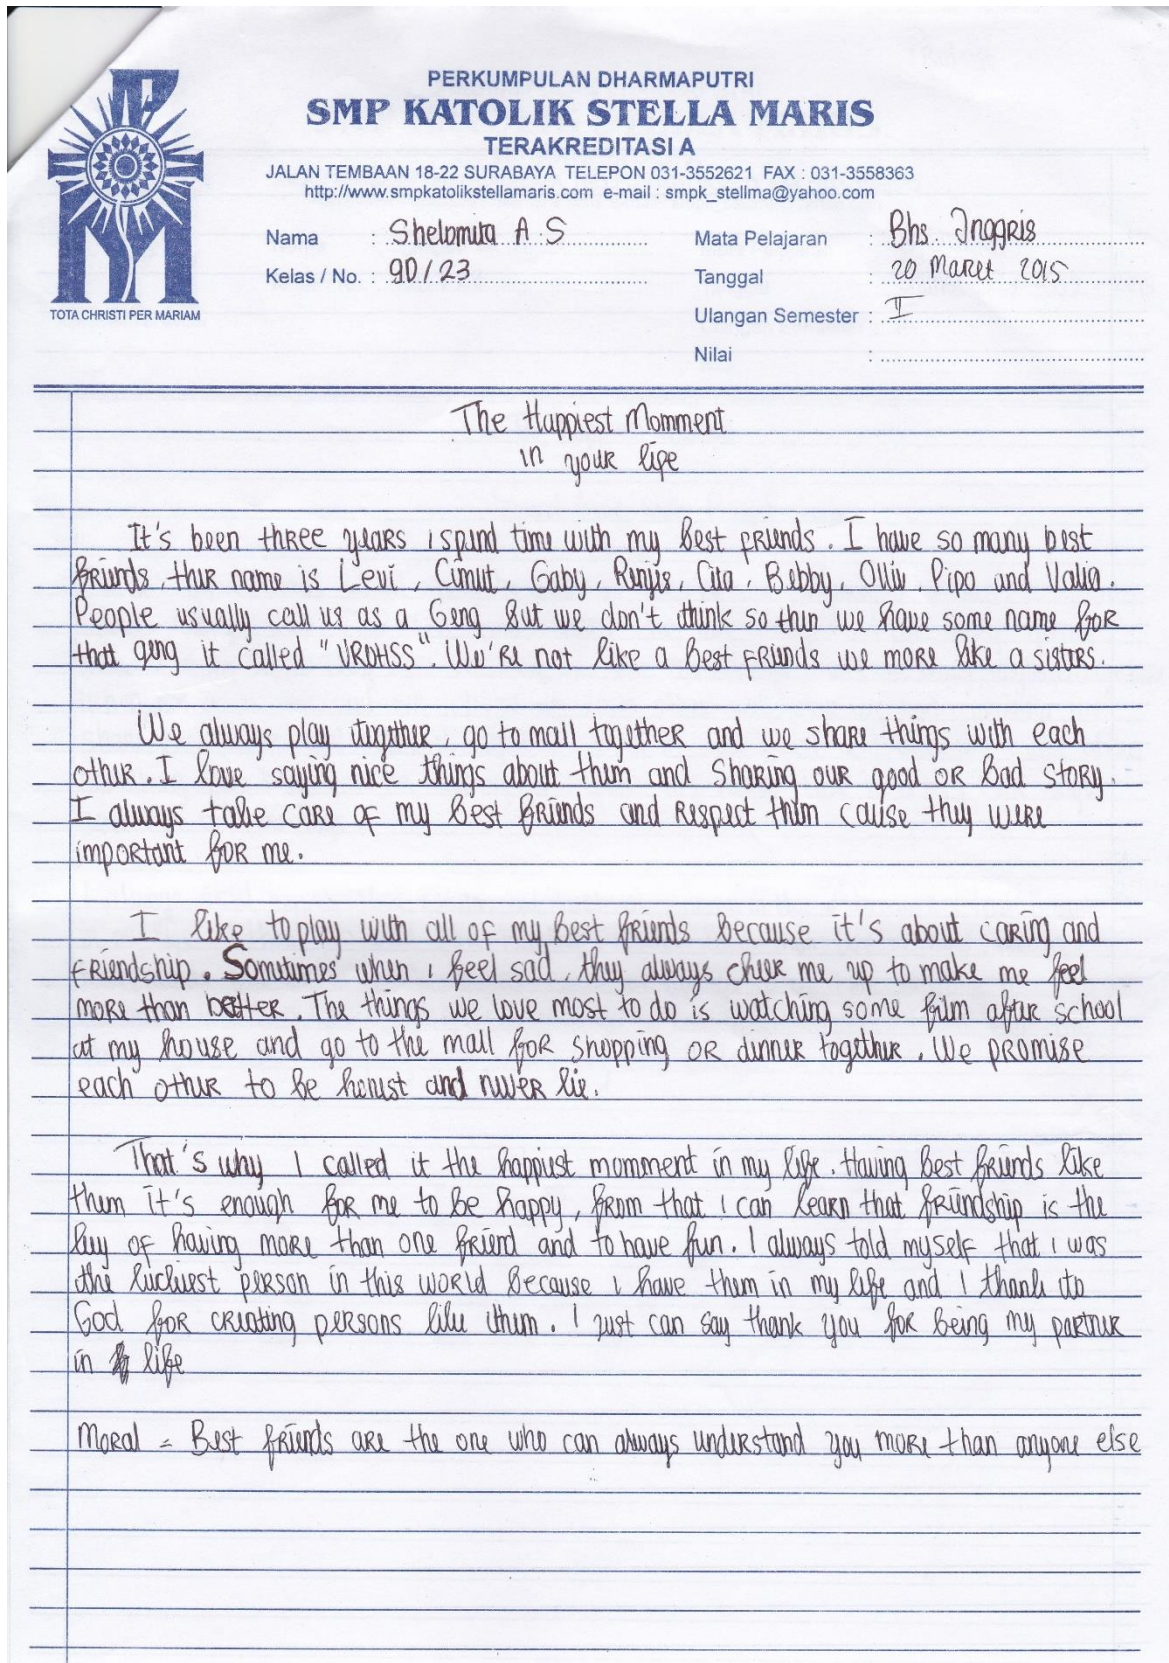 PERKUMPULAN DHARMAPUTRI
SMP KATOLIK STELLA MARIS
TERAKREDITASI A
JALAN TEMBAAN 18-22 SURABAYA TELEPON 031-3552621 FAX : 031-3558363
http://www.smpkatolikstellamaris.com e-mail : smpk_stellma@yahoo.com
TOTA CHRISTI PER MARIAM
Nama : Shelomita A.S
Kelas / No. : 9D/23
Mata Pelajaran : Bhs. Inggris
Tanggal : 20 Maret 2015
Ulangan Semester : I
Nilai :
The Happiest Momment
in your life
It's been three years i spend time with my best friends. I have so many best
friends, their name is Levi, Cimut, Gaby, Cita, Bebby, Olliv, Pipo and Valia.
People usually call us as a Geng But we don't think so then we have some name for
that geng it called "VRDHSS". We're not like a best friends we more like a sisters.
We always play together, go to mall together and we share things with each
other. I love saying nice things about them and sharing our good or bad story.
I always take care of my best friends and respect them cause they were
important for me.
I like to play with all of my best friends because it's about caring and
friendship. Sometimes when i feel sad, they always cheer me up to make me feel
more than better. The things we love most to do is watching some film after school
at my house and go to the mall for shopping or dinner together. We promise
each other to be honest and never lie.
That's why I called it the happiest momment in my life. Having best friends like
them it's enough for me to be happy, from that i can learn that friendship is the
key of having more than one friend and to have fun. I always told myself that i was
the luckiest person in this world because i have them in my life and I thank to
God for creating persons like them. I just can say thank you for being my partner
in life
Moral = Best friends are the one who can always understand you more than anyone else